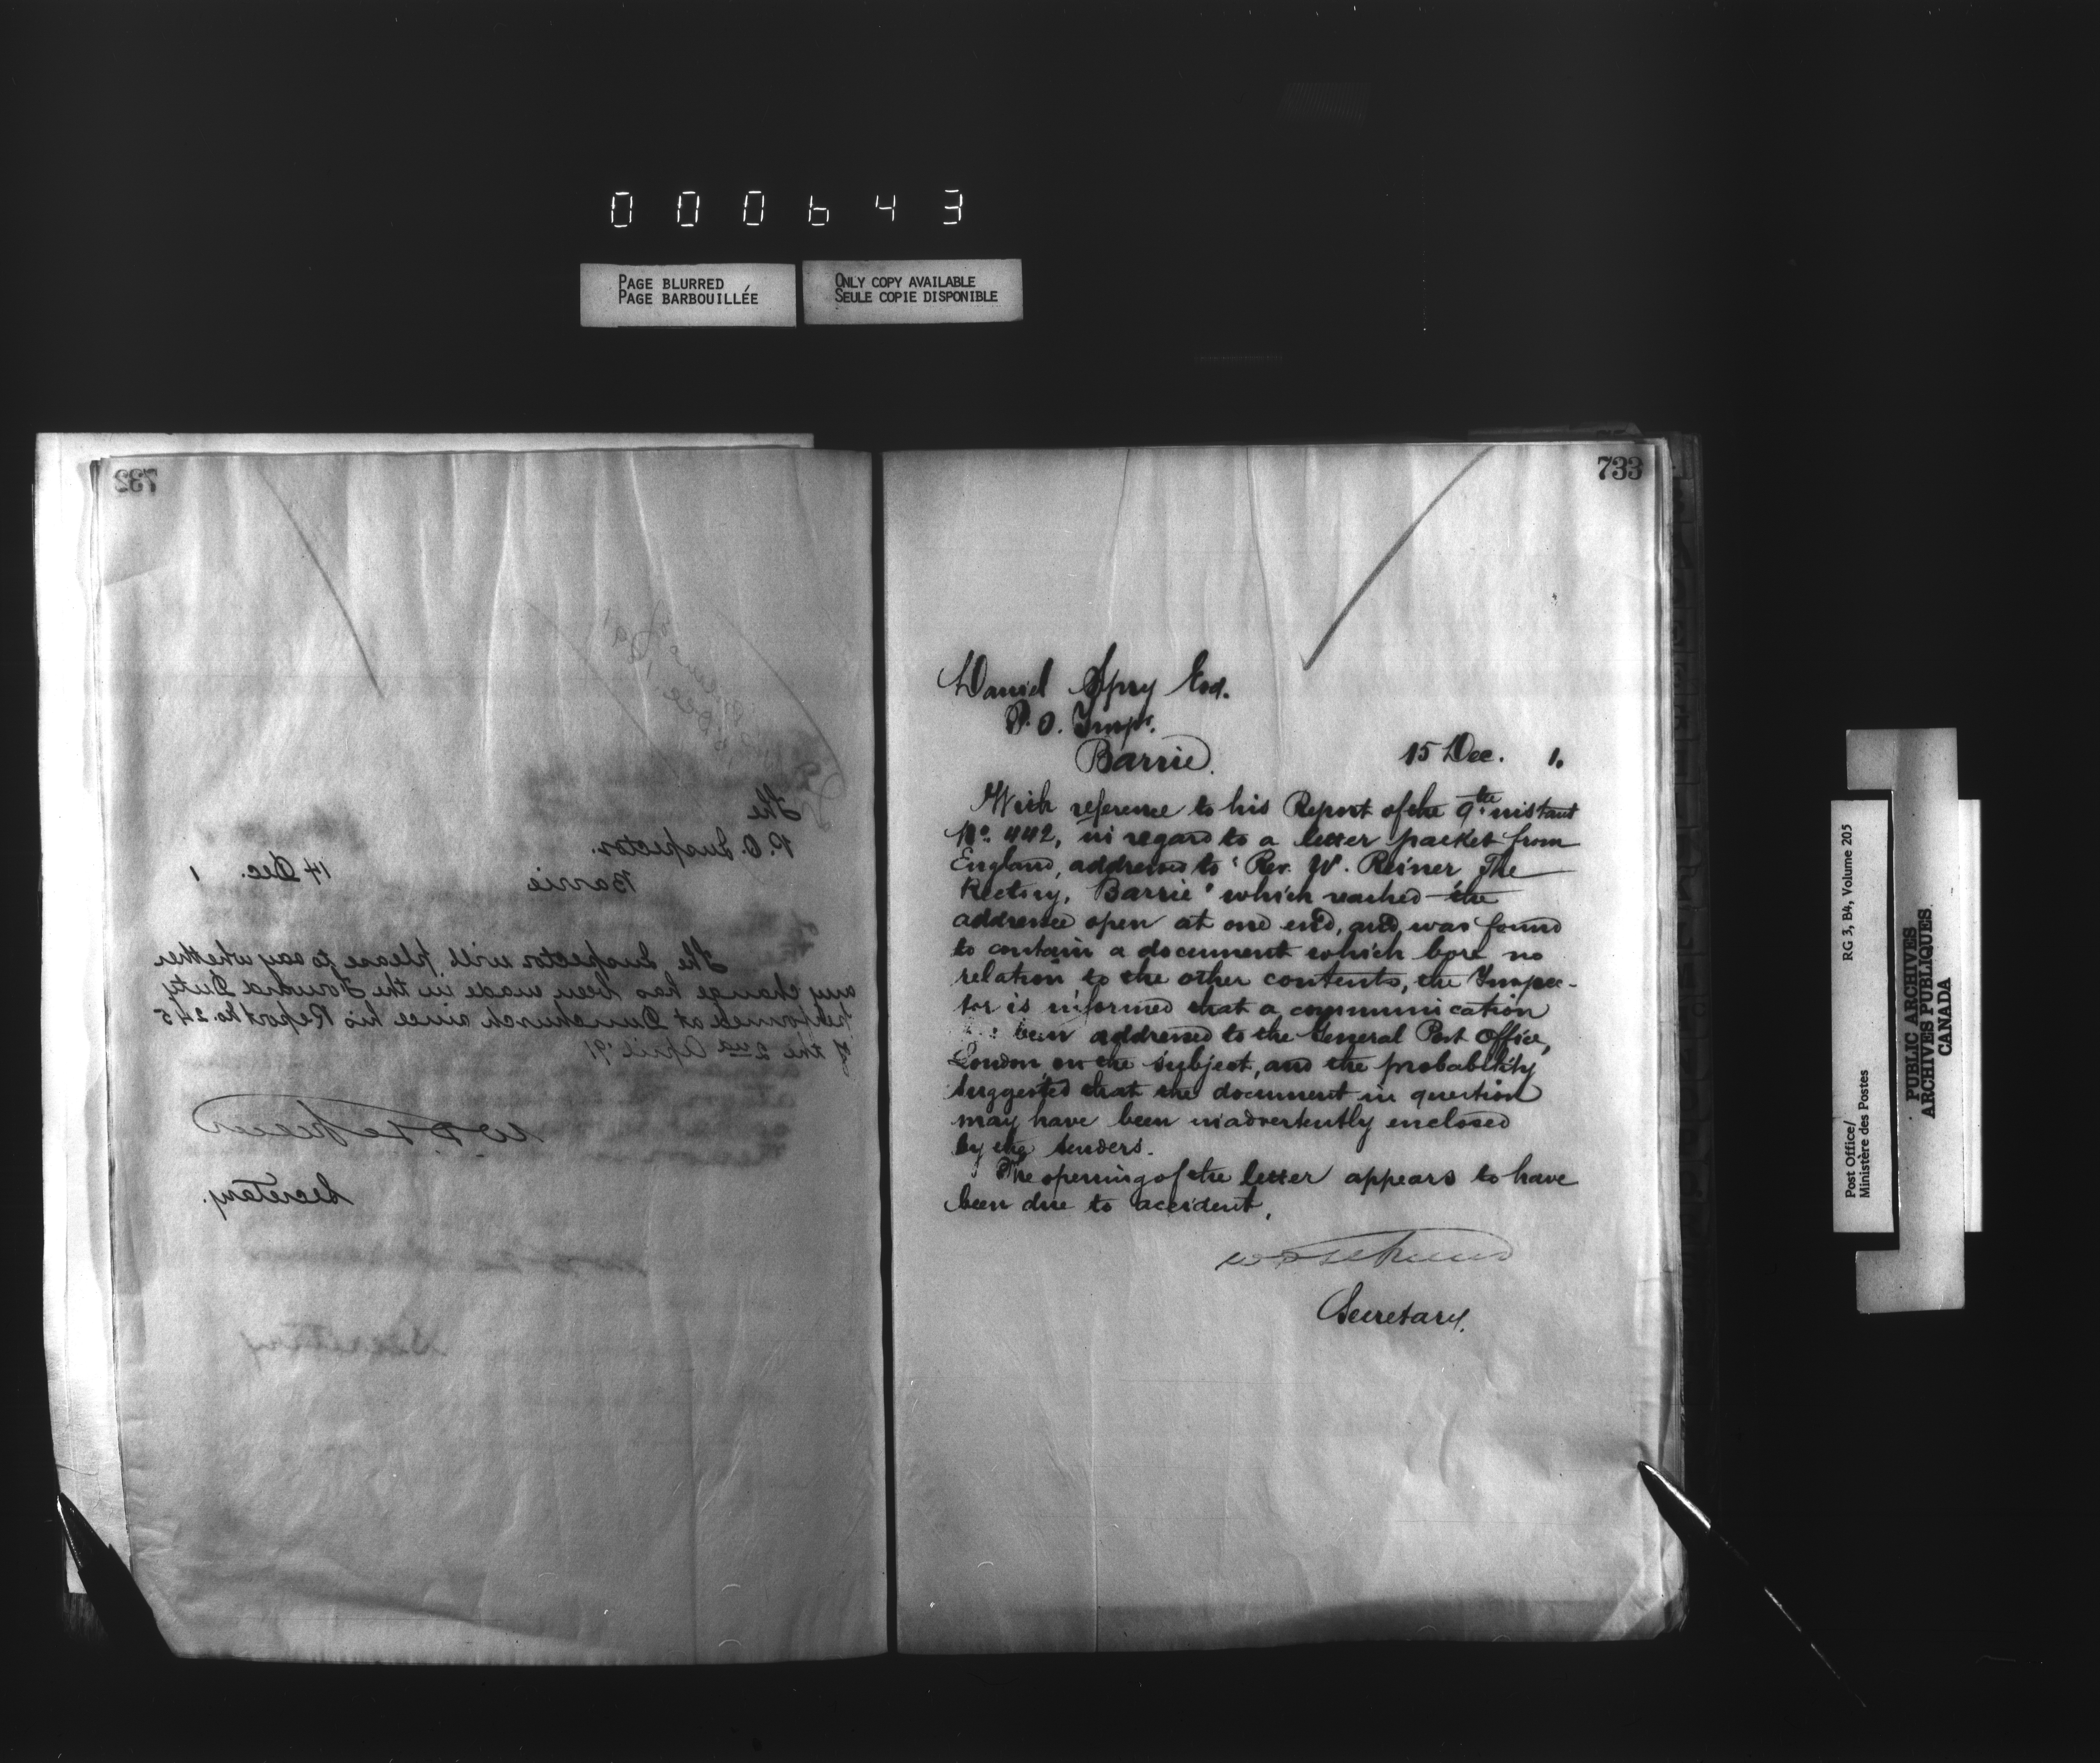 000643
PAGE BLURRED
PAGE BARBOUILLÉE
ONLY COPY AVAILABLE
SEULE COPIE DISPONIBLE
732
The
P.O. Inspector.
Barrie
14 Dec. 1
The Inspector will please to say whether
any change has been made in the Forward Duty
performed at Dunchurch since his Report No. 245
of the 2nd April '91
Secretary.
Secretary
733
Daniel Spry Esq.
P.O. Inspr.
Barrie.
15 Dec. 1.
With reference to his Report of the 9th instant
No. 442, in regard to a letter packet from
England, addressed to "Rev. W. Reiner, The
Rectory, Barrie" which reached the
addressee open at one end, and was found
to contain a document which bore no
relation to the other contents, the Inspec-
tor is informed that a communication
been addressed to the General Post Office,
London, on the subject, and the probability
suggested that the document in question
may have been inadvertently enclosed
by the senders.
The opening of the letter appears to have
been due to accident.
Secretary.
RG 3, B4, Volume 205
Post Office/
Ministère des Postes
PUBLIC ARCHIVES
ARCHIVES PUBLIQUES
CANADA